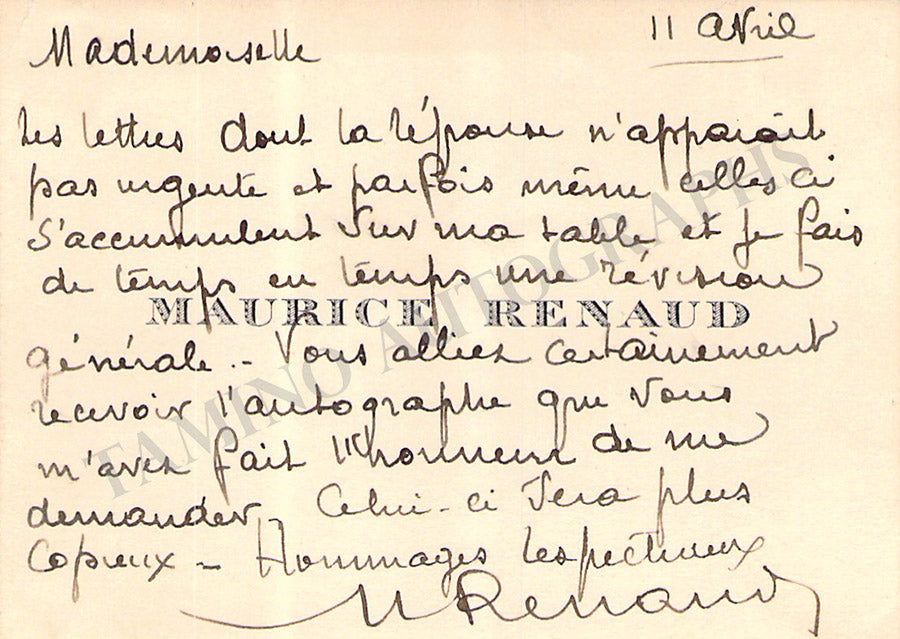 11 avril
Mademoiselle
Les lettres dont la réponse n'apparaît
pas urgente et parfois même celles ci
s'accumulent sur ma table et je fais
de temps en temps une révision
MAURICE RENAUD
générale - Vous alliez certainement
recevoir l'autographe que vous
m'avez fait l'honneur de me
demander - Celui-ci sera plus
copieux - Hommages respectueux
M Renaud
TAMINO AUTOGRAPHS